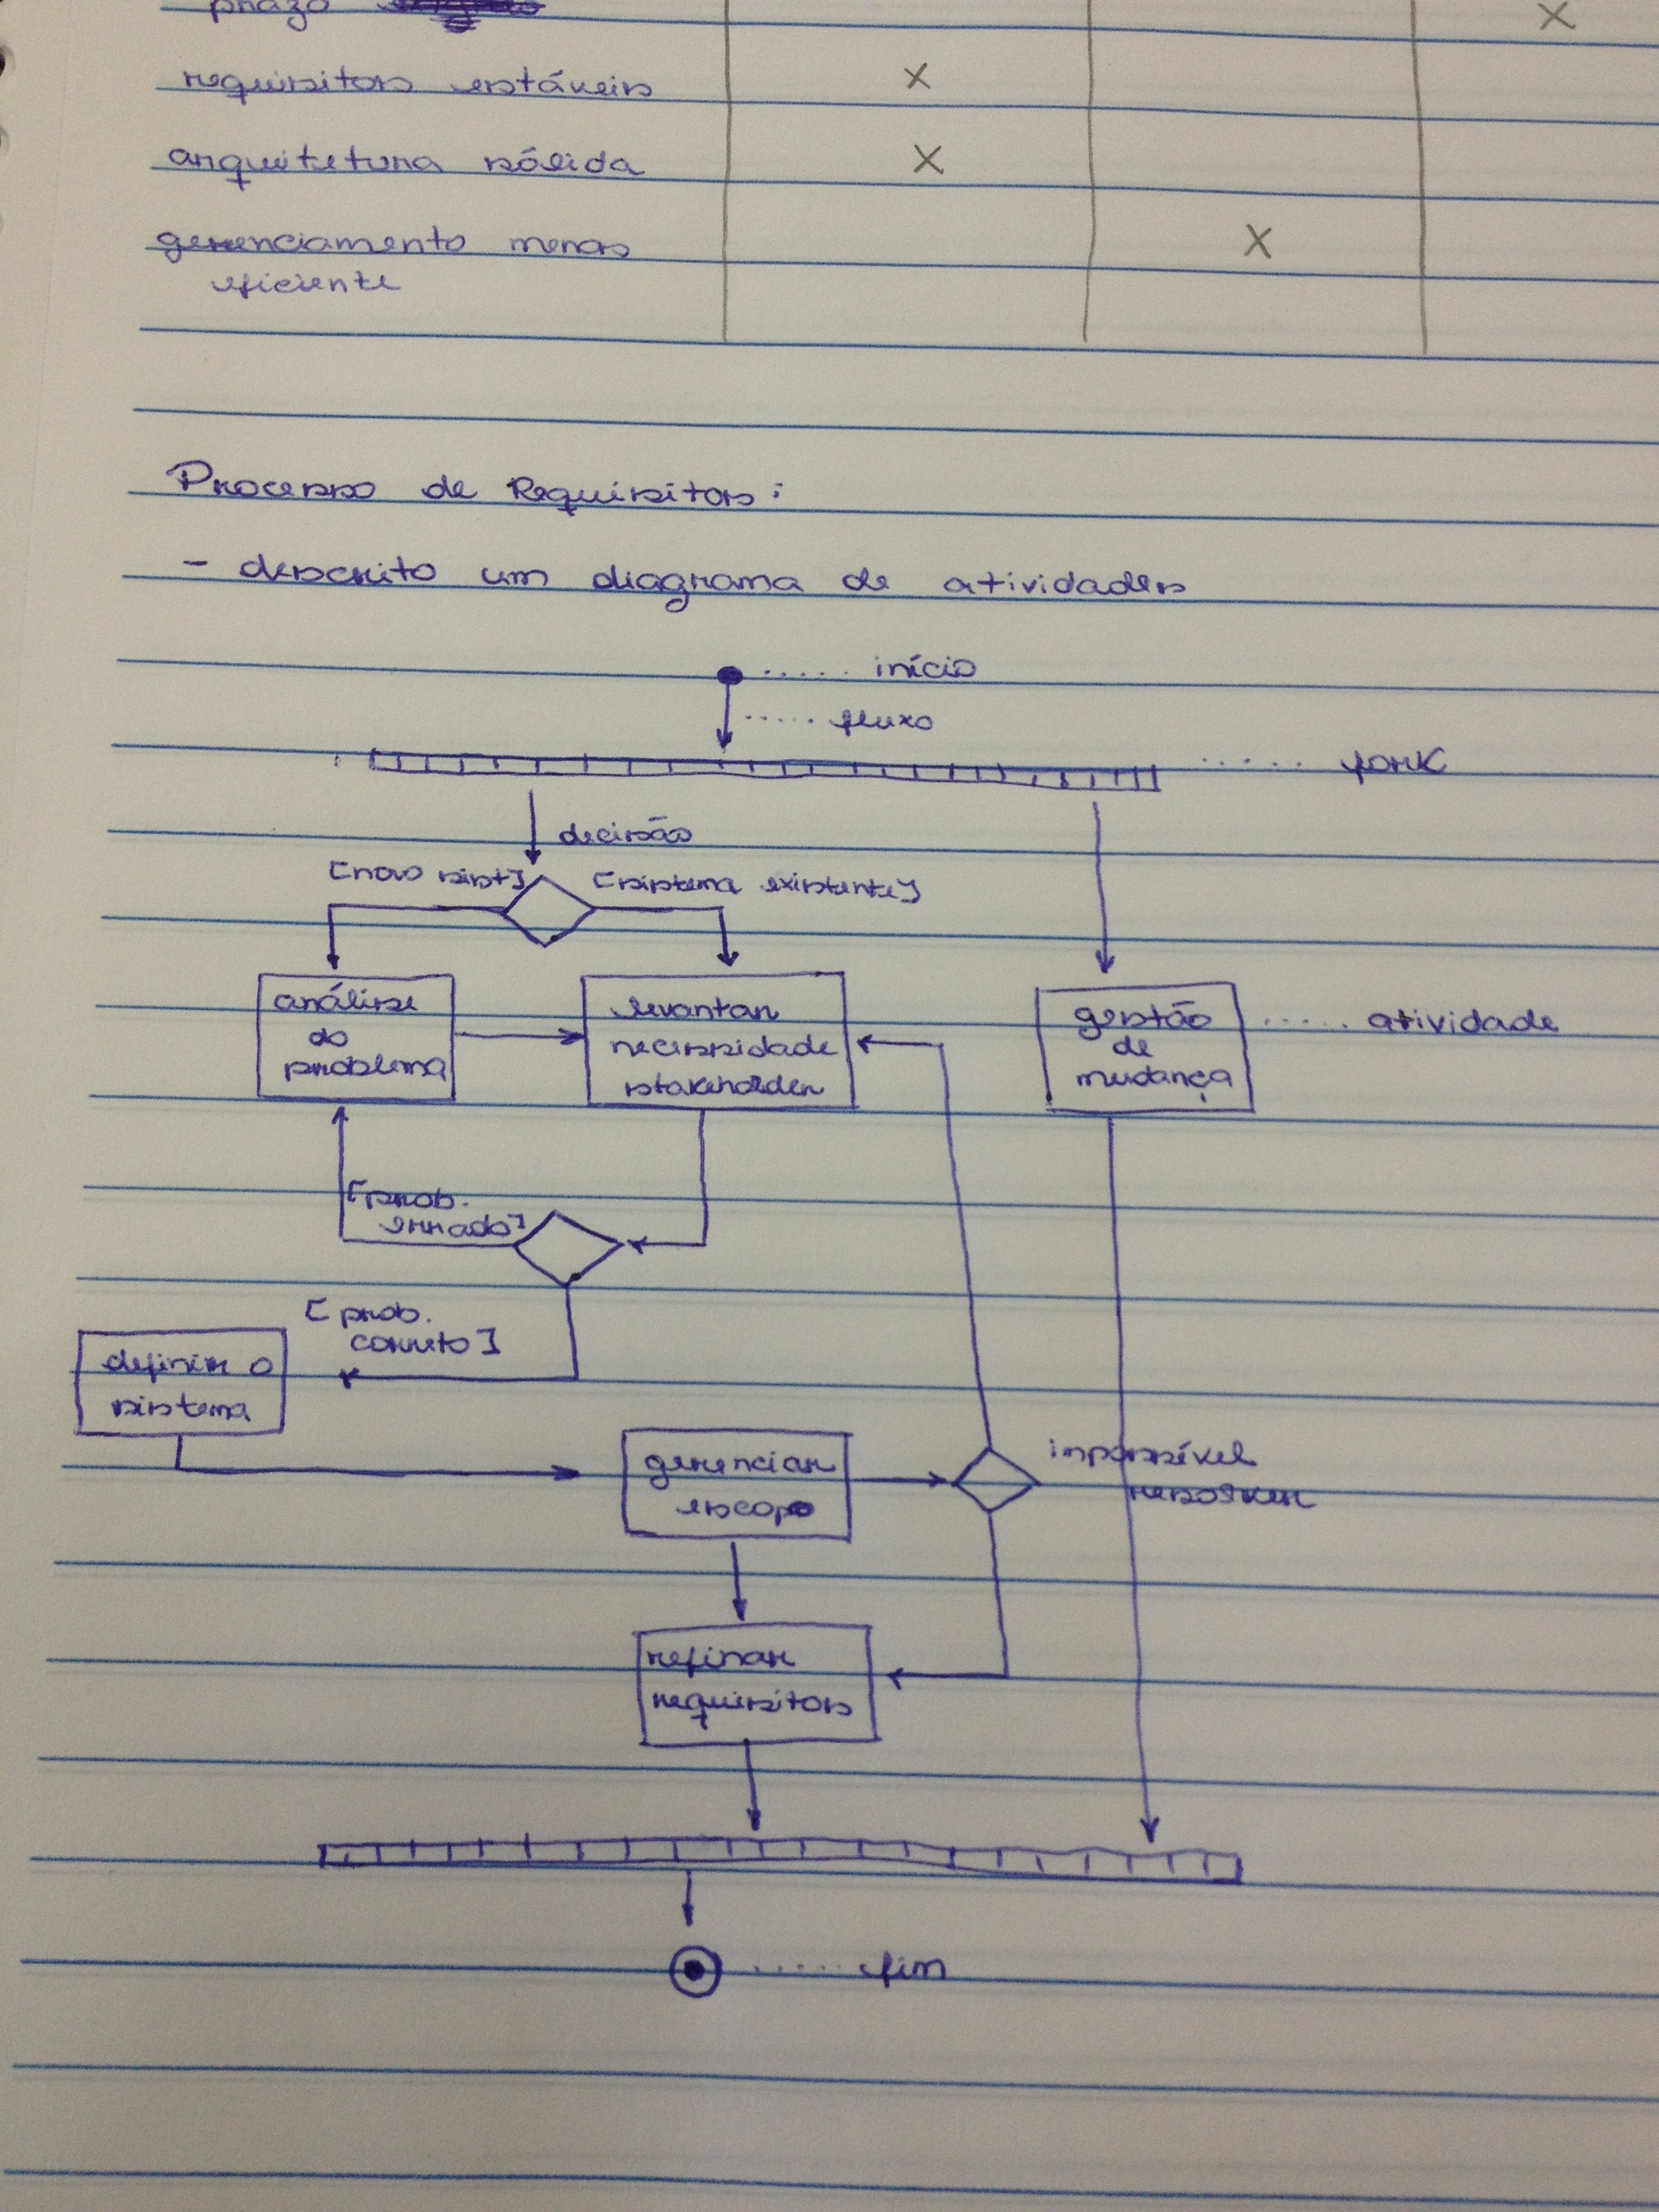 prazo X
requisitos estáveis X
arquitetura sólida X
gerenciamento menos X
eficiente
Processo de Requisitos:
- descrito um diagrama de atividades
..... início
..... fluxo
..... fork
decisão
[novo sist] [sistema existente]
análise
do
problema
levantar
necessidade
stakeholder
gestão
de
mudança
..... atividade
[prob.
errado]
[prob.
correto]
definir o
sistema
gerenciar
escopo
impossível
resolver
refinar
requisitos
..... fim